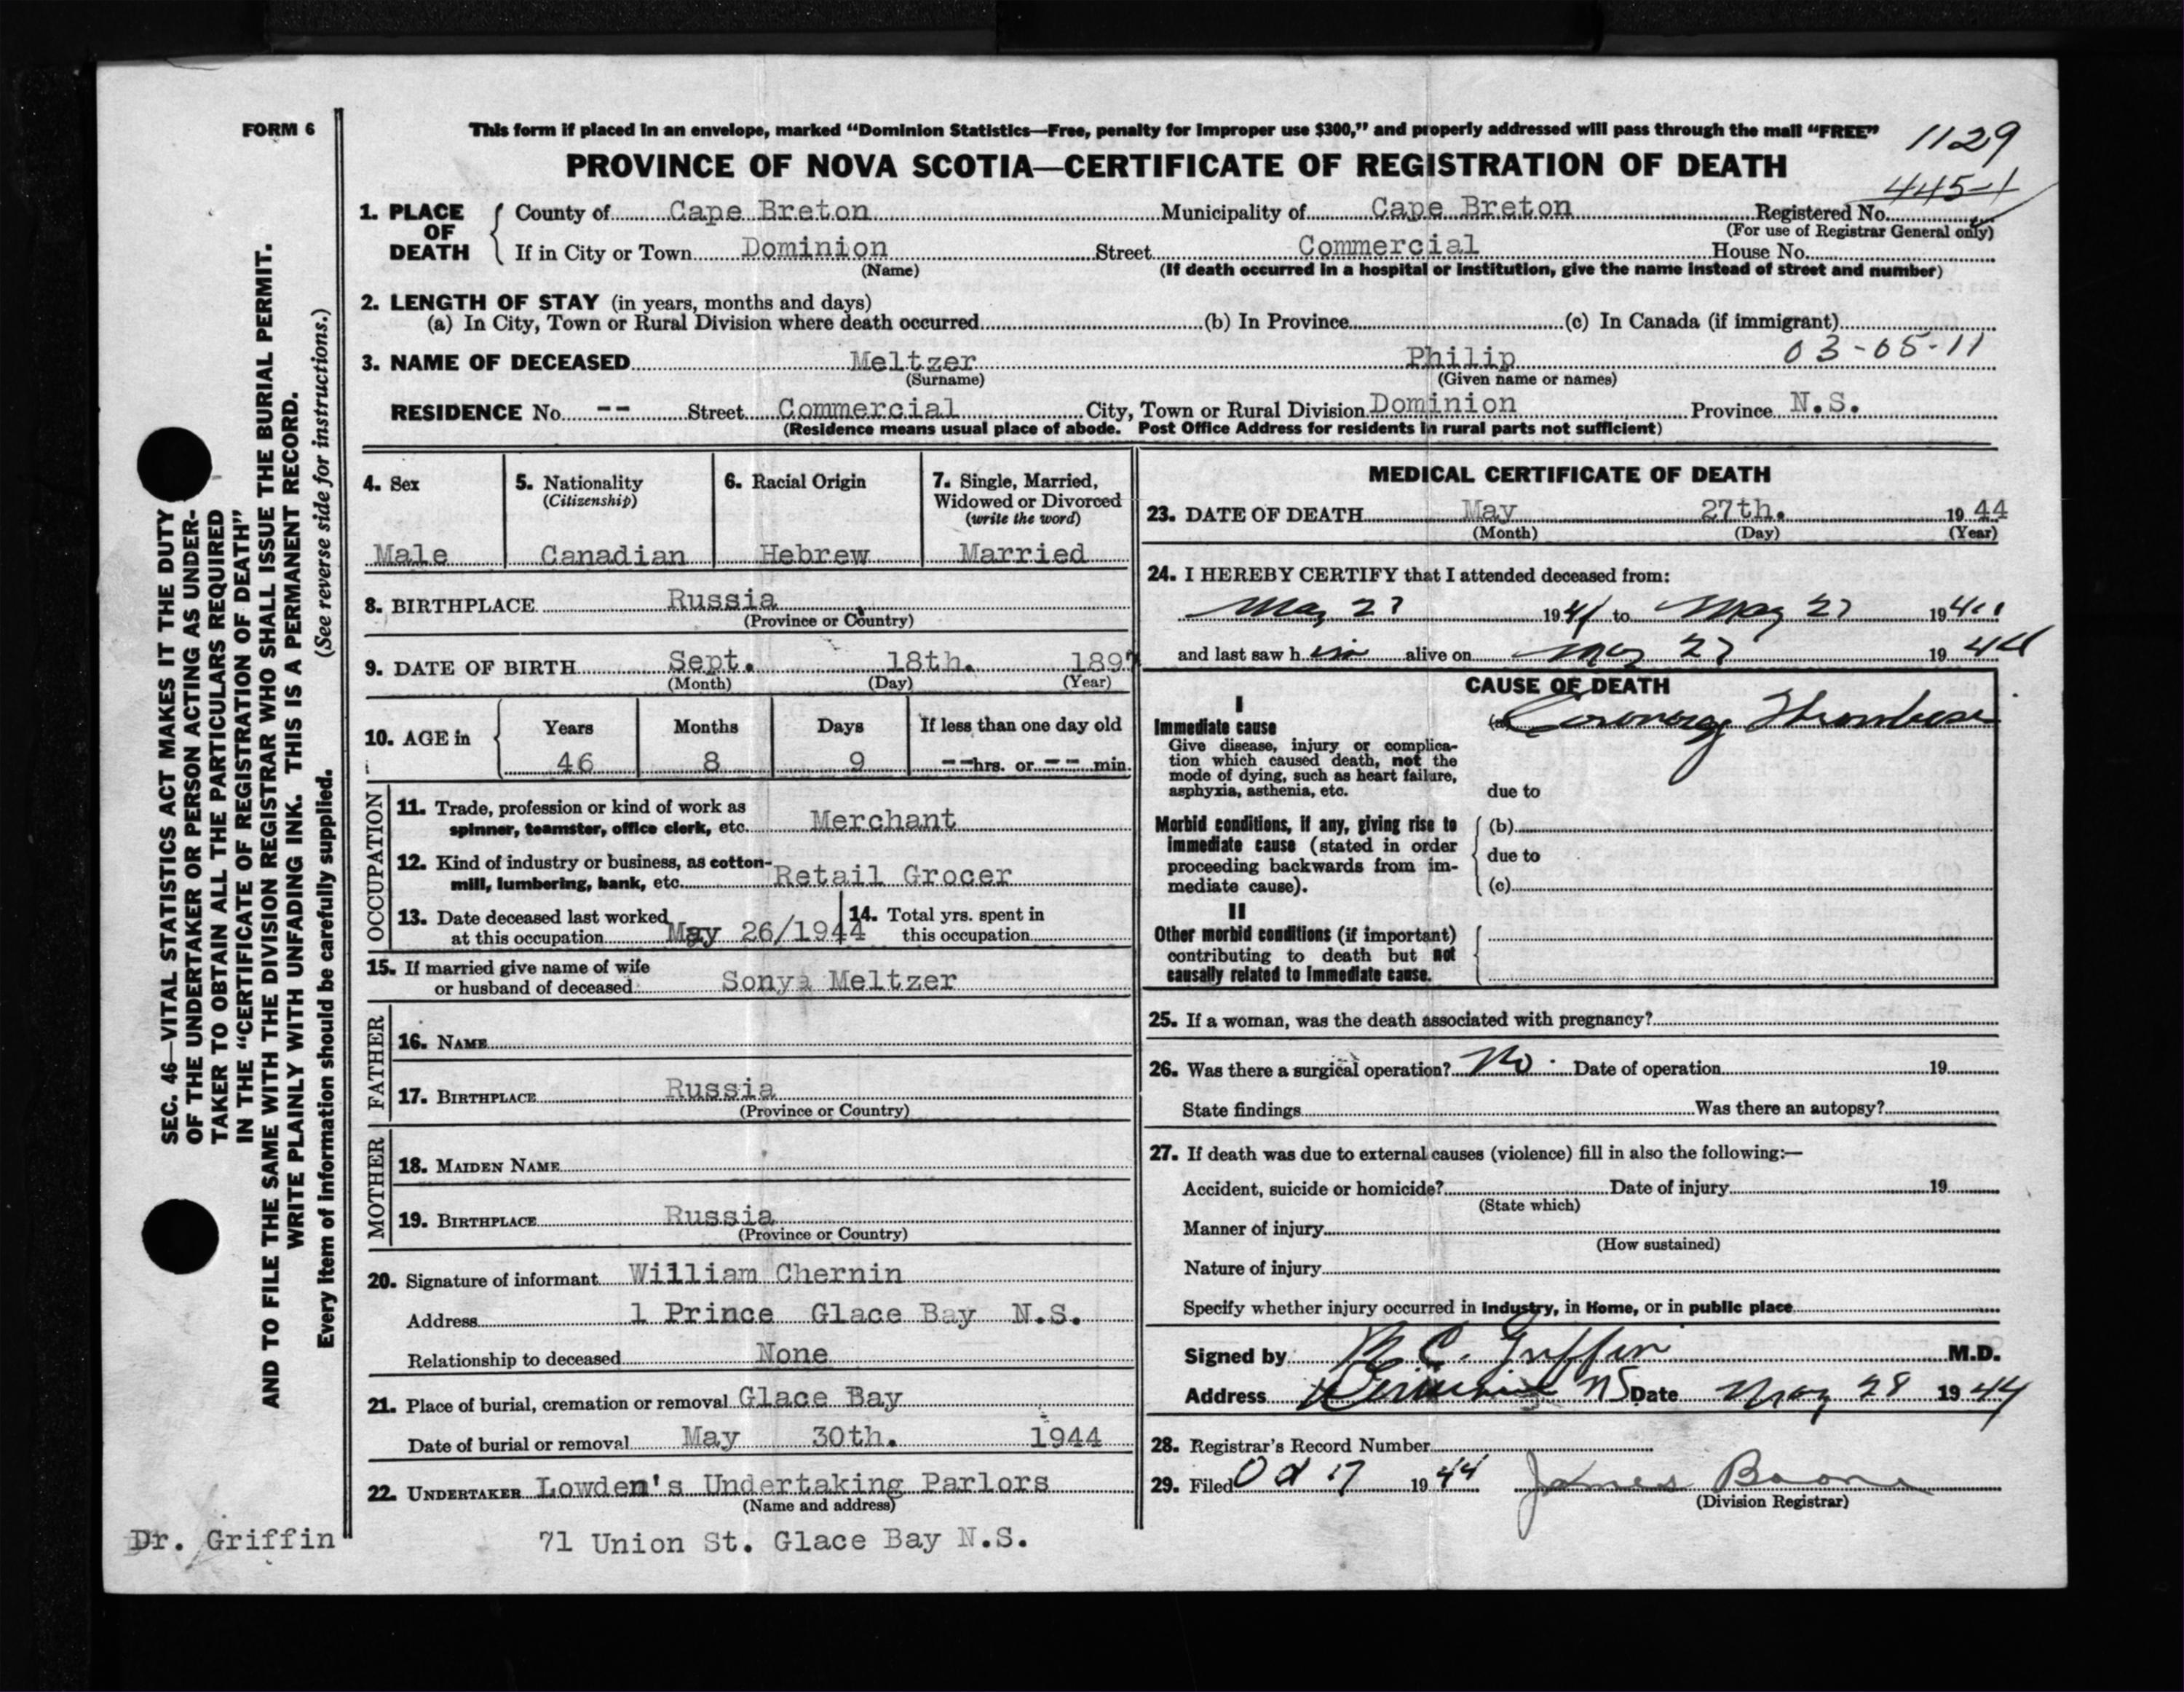 FORM 6
This form if placed in an envelope, marked "Dominion Statistics—Free, penalty for improper use $300," and properly addressed will pass through the mail "FREE"
1129
PROVINCE OF NOVA SCOTIA—CERTIFICATE OF REGISTRATION OF DEATH
4451
1. PLACE OF DEATH County of Cape Breton Municipality of Cape Breton Registered No.
(For use of Registrar General only)
If in City or Town Dominion Street Commercial House No.
(Name) (If death occurred in a hospital or institution, give the name instead of street and number)
2. LENGTH OF STAY (in years, months and days)
(a) In City, Town or Rural Division where death occurred (b) In Province (c) In Canada (if immigrant)
03-05-11
3. NAME OF DECEASED Meltzer Philip
(Surname) (Given name or names)
RESIDENCE No. -- Street Commercial City, Town or Rural Division Dominion Province N.S.
(Residence means usual place of abode. Post Office Address for residents in rural parts not sufficient)
4. Sex
Male
5. Nationality
(Citizenship)
Canadian
6. Racial Origin
Hebrew
7. Single, Married,
Widowed or Divorced
(write the word)
Married
8. BIRTHPLACE Russia
(Province or Country)
9. DATE OF BIRTH Sept. 18th. 1897
(Month) (Day) (Year)
10. AGE in Years Months Days If less than one day old
46 8 9 -- hrs. or -- min.
OCCUPATION
11. Trade, profession or kind of work as
spinner, teamster, office clerk, etc. Merchant
12. Kind of industry or business, as cotton-
mill, lumbering, bank, etc. Retail Grocer
13. Date deceased last worked
at this occupation May 26/1944
14. Total yrs. spent in
this occupation
15. If married give name of wife
or husband of deceased Sonya Meltzer
FATHER
16. NAME
17. BIRTHPLACE Russia
(Province or Country)
MOTHER
18. MAIDEN NAME
19. BIRTHPLACE Russia
(Province or Country)
20. Signature of informant William Chernin
Address 1 Prince Glace Bay N.S.
Relationship to deceased None
21. Place of burial, cremation or removal Glace Bay
Date of burial or removal May 30th. 1944
22. UNDERTAKER Lowden's Undertaking Parlors
(Name and address)
71 Union St. Glace Bay N.S.
MEDICAL CERTIFICATE OF DEATH
23. DATE OF DEATH May 27th. 1944
(Month) (Day) (Year)
24. I HEREBY CERTIFY that I attended deceased from:
May 27 1944 to May 27 1944
and last saw him alive on May 27 1944
CAUSE OF DEATH
I
Immediate cause (a) Coronary Thrombosis
Give disease, injury or complica-
tion which caused death, not the
mode of dying, such as heart failure,
asphyxia, asthenia, etc. due to
Morbid conditions, if any, giving rise to (b)
immediate cause (stated in order due to
proceeding backwards from im-
mediate cause). (c)
II
Other morbid conditions (if important)
contributing to death but not
causally related to immediate cause.
25. If a woman, was the death associated with pregnancy?
26. Was there a surgical operation? No. Date of operation 19
State findings Was there an autopsy?
27. If death was due to external causes (violence) fill in also the following:—
Accident, suicide or homicide? Date of injury 19
(State which)
Manner of injury
(How sustained)
Nature of injury
Specify whether injury occurred in Industry, in Home, or in public place
Signed by C. Griffin M.D.
Address Dominion NS Date May 28 1944
28. Registrar's Record Number
29. Filed Oct 17 1944 James Boone
(Division Registrar)
SEC. 46—VITAL STATISTICS ACT MAKES IT THE DUTY
OF THE UNDERTAKER OR PERSON ACTING AS UNDER-
TAKER TO OBTAIN ALL THE PARTICULARS REQUIRED
IN THE "CERTIFICATE OF REGISTRATION OF DEATH"
AND TO FILE THE SAME WITH THE DIVISION REGISTRAR WHO SHALL ISSUE THE BURIAL PERMIT.
WRITE PLAINLY WITH UNFADING INK. THIS IS A PERMANENT RECORD.
Every item of information should be carefully supplied. (See reverse side for instructions.)
Dr. Griffin